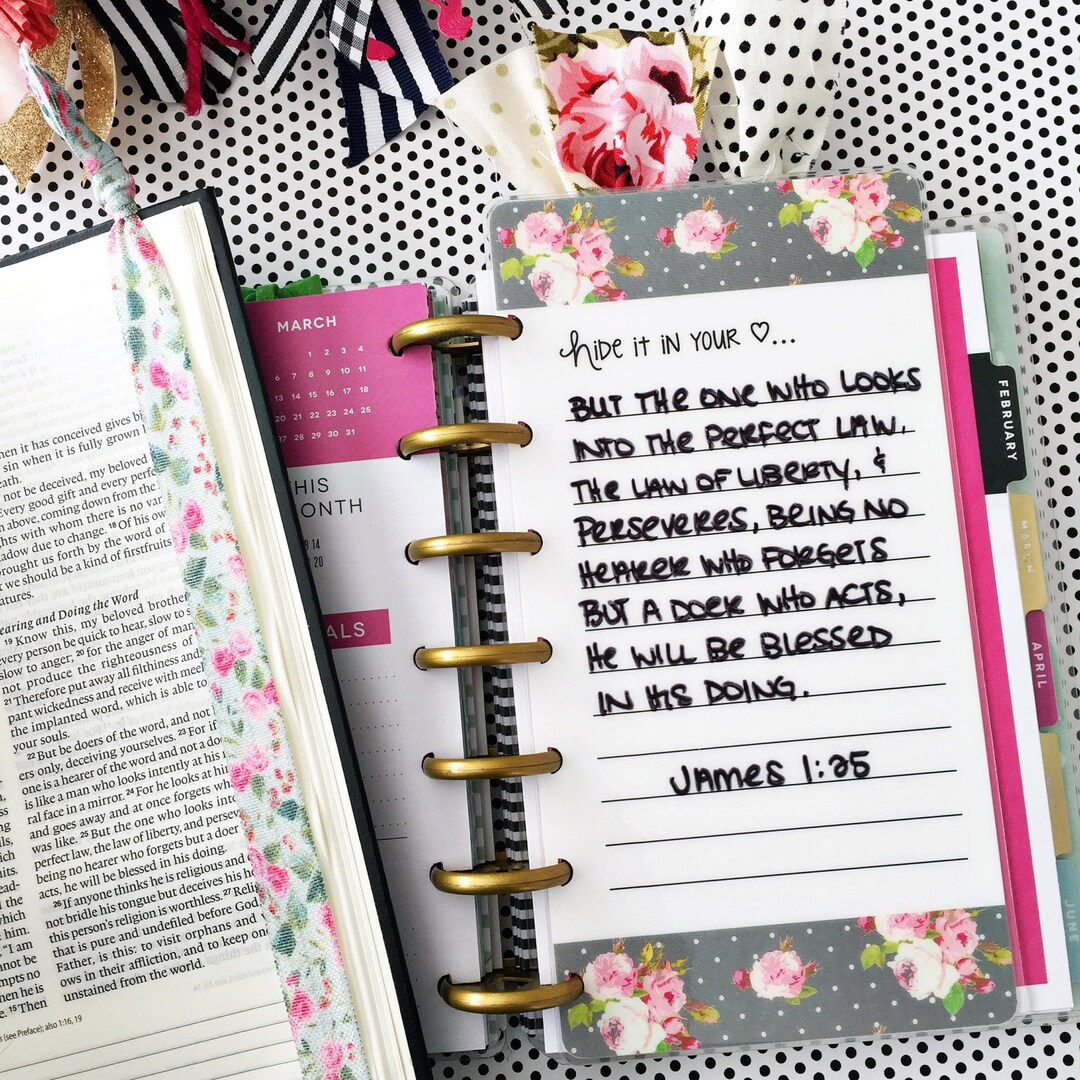 hen it has conceived gives bi
sin when it is fully grown b
eath.
not be deceived, my beloved
Every good gift and every perfe
n above, coming down from the
ghts with whom there is no var
adow due to change. 18 Of his ow
rought us forth by the word of
t we should be a kind of firstfruits
atures.
earing and Doing the Word
19 Know this, my beloved brother
every person be quick to hear, slow to s
slow to anger; 20 for the anger of man
not produce the righteousness of
21 Therefore put away all filthiness and
pant wickedness and receive with meek
the implanted word, which is able to
your souls.
22 But be doers of the word, and not h
ers only, deceiving yourselves. 23 For if
one is a hearer of the word and not a do
is like a man who looks intently at his
ral face in a mirror. 24 For he looks at him
and goes away and at once forgets wha
was like. 25 But the one who looks into
perfect law, the law of liberty, and persev
being no hearer who forgets but a doer
acts, he will be blessed in his doing.
26 If anyone thinks he is religious and
not bridle his tongue but deceives his he
this person's religion is worthless. 27 Relig
that is pure and undefiled before God
Father, is this: to visit orphans and
ows in their affliction, and to keep one
unstained from the world.
(see Preface); also 1:16, 19
MARCH
1 2 3 4
6 7 8 9 10 11
13 14 15 16 17 18
20 21 22 23 24 25
27 28 29 30 31
THIS
MONTH
ALS
hide it in your ♡...
BUT THE ONE WHO LOOKS
INTO THE PERFECT LAW,
THE LAW OF LIBERTY, &
PERSEVERES, BEING NO
HEARER WHO FORGETS
BUT A DOER WHO ACTS,
HE WILL BE BLESSED
IN HIS DOING.
JAMES 1:25
FEBRUARY
MARCH
APRIL
JUNE